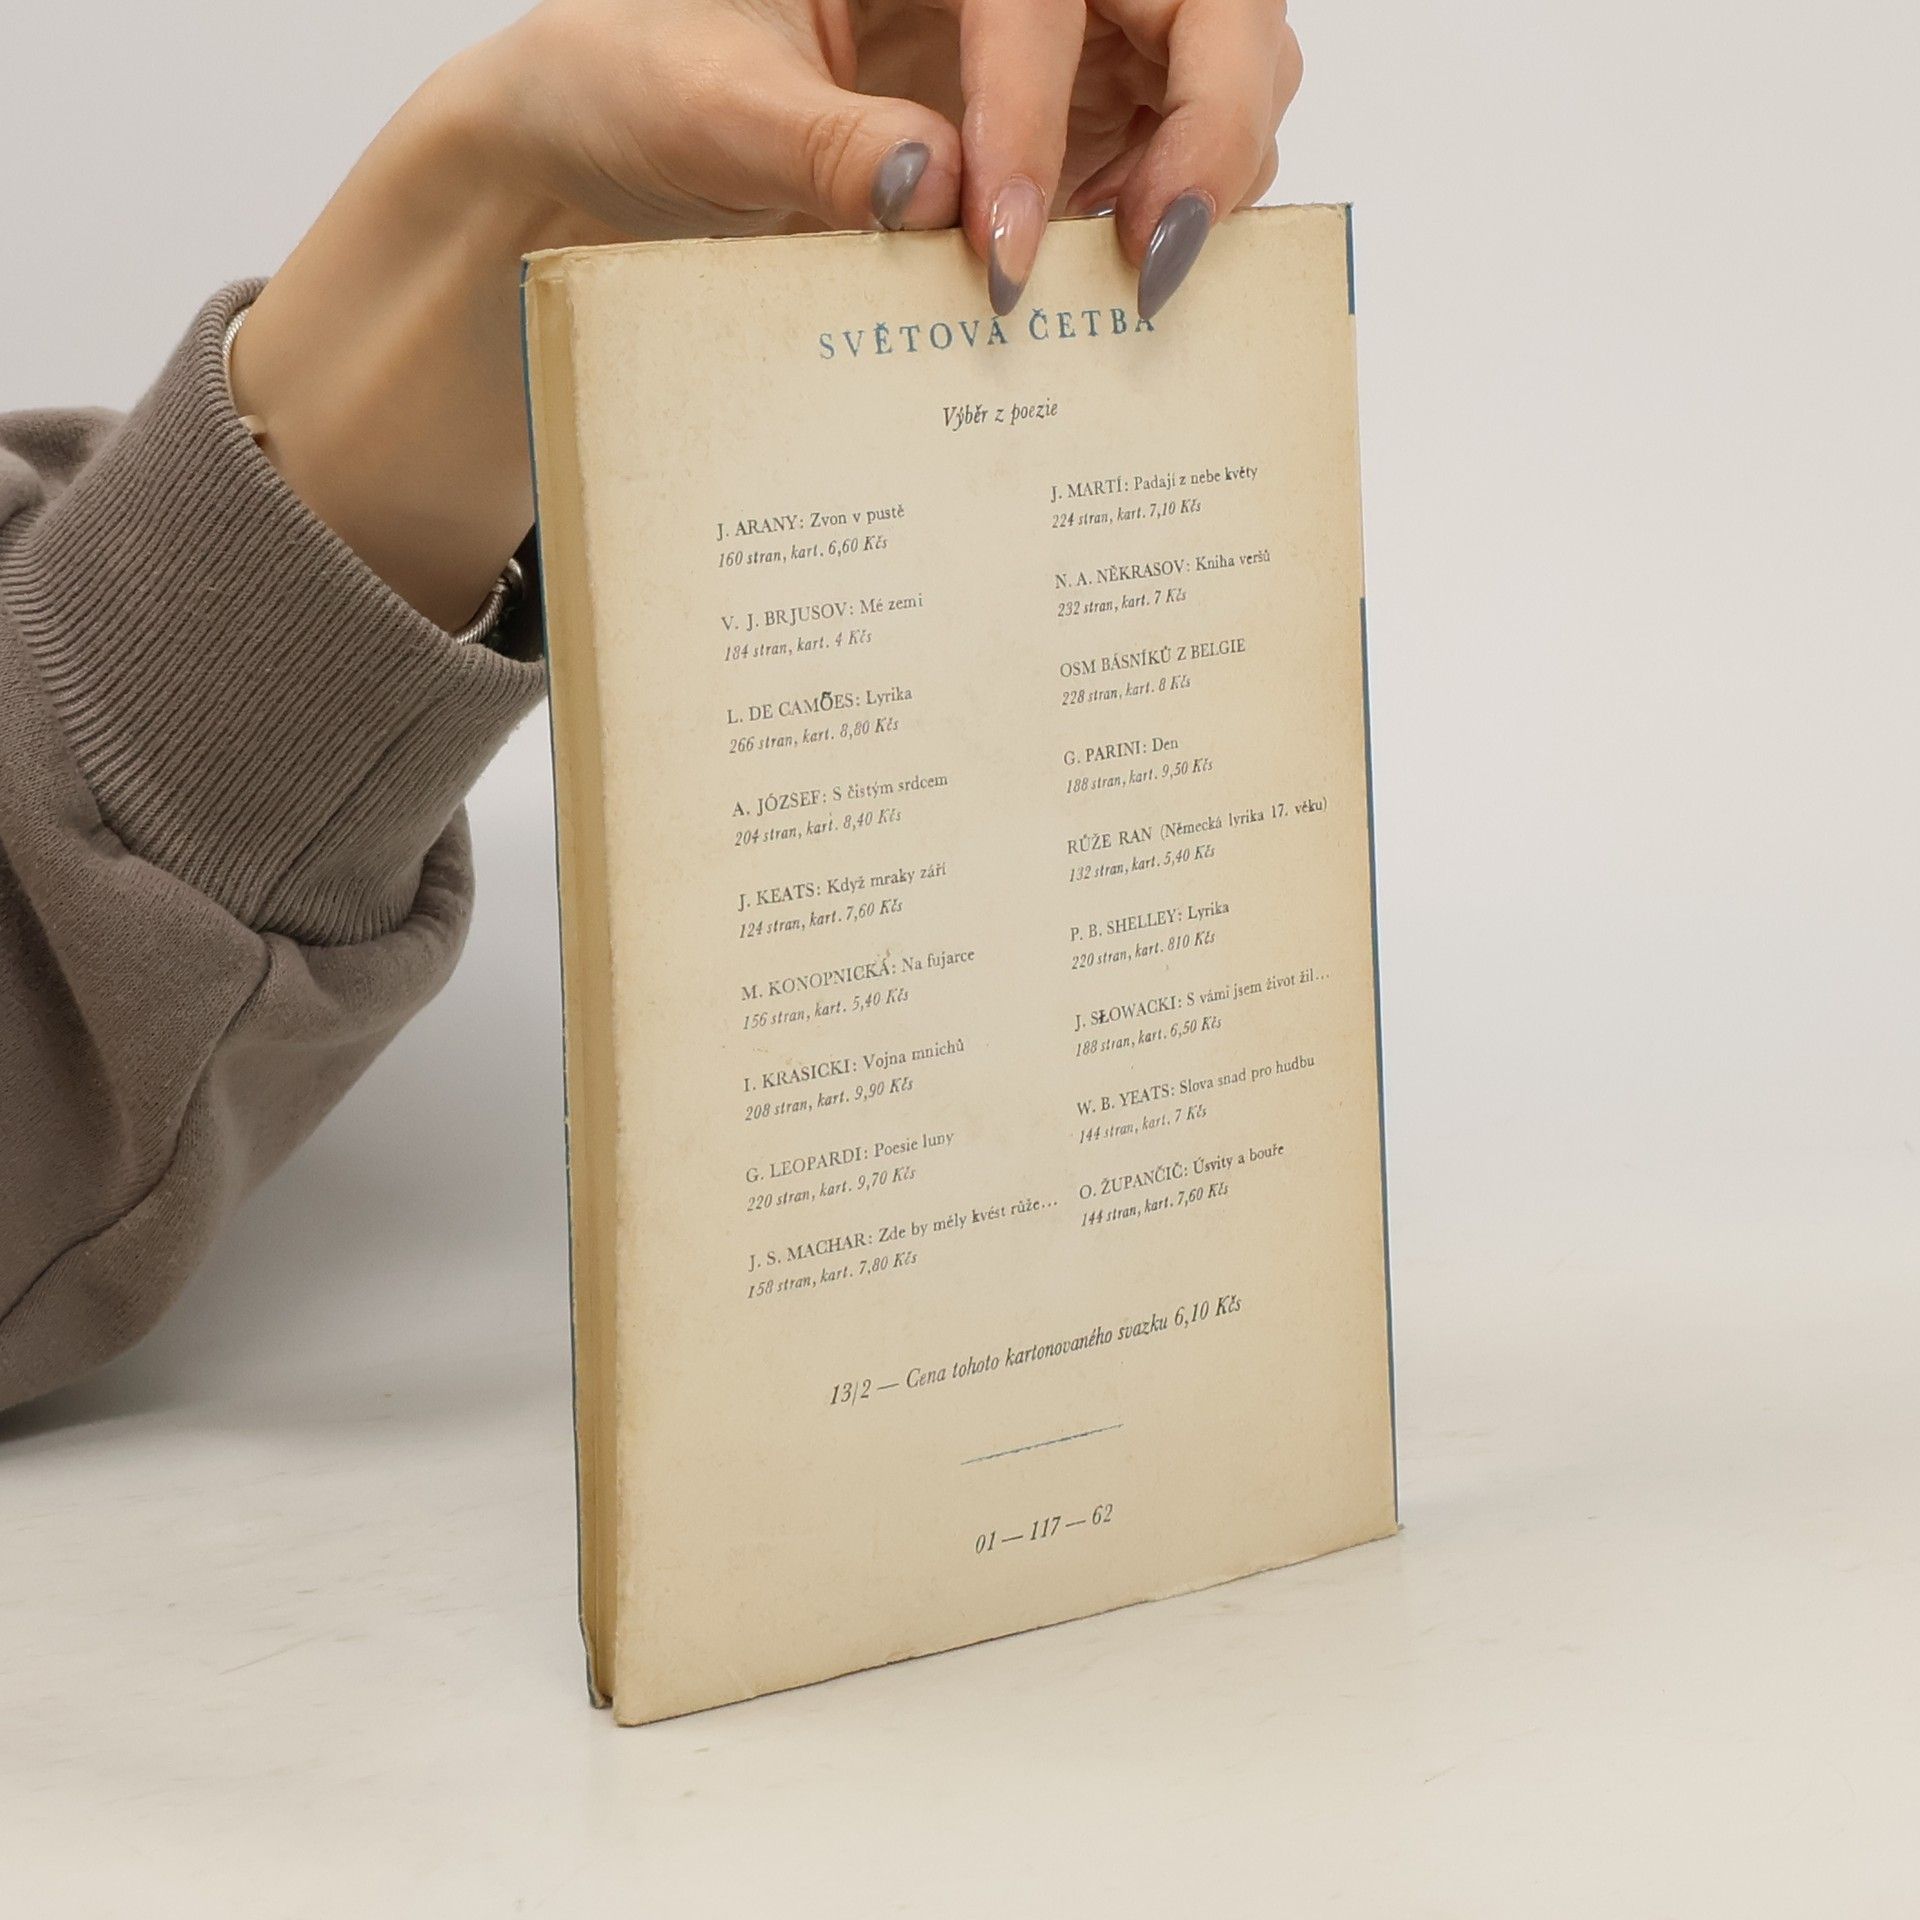 SVĚTOVÁ ČETBA
Výběr z poezie
J. ARANY: Zvon v pustě
160 stran, kart. 6,60 Kčs
V. J. BRJUSOV: Mé zemi
184 stran, kart. 4 Kčs
L. DE CAMÕES: Lyrika
266 stran, kart. 8,80 Kčs
A. JÓZSEF: S čistým srdcem
204 stran, kart. 8,40 Kčs
J. KEATS: Když mraky září
124 stran, kart. 7,60 Kčs
M. KONOPNICKÁ: Na fujarce
156 stran, kart. 5,40 Kčs
I. KRASICKI: Vojna mnichů
208 stran, kart. 9,90 Kčs
G. LEOPARDI: Poesie luny
220 stran, kart. 9,70 Kčs
J. S. MACHAR: Zde by měly kvést růže...
158 stran, kart. 7,80 Kčs
J. MARTÍ: Padají z nebe květy
224 stran, kart. 7,10 Kčs
N. A. NĚKRASOV: Kniha veršů
232 stran, kart. 7 Kčs
OSM BÁSNÍKŮ Z BELGIE
228 stran, kart. 8 Kčs
G. PARINI: Den
188 stran, kart. 9,50 Kčs
RŮŽE RAN (Německá lyrika 17. věku)
132 stran, kart. 5,40 Kčs
P. B. SHELLEY: Lyrika
220 stran, kart. 810 Kčs
J. SŁOWACKI: S vámi jsem život žil...
188 stran, kart. 6,50 Kčs
W. B. YEATS: Slova snad pro hudbu
144 stran, kart. 7 Kčs
O. ŽUPANČIČ: Úsvity a bouře
144 stran, kart. 7,60 Kčs
13/2 — Cena tohoto kartonovaného svazku 6,10 Kčs
01 — 117 — 62